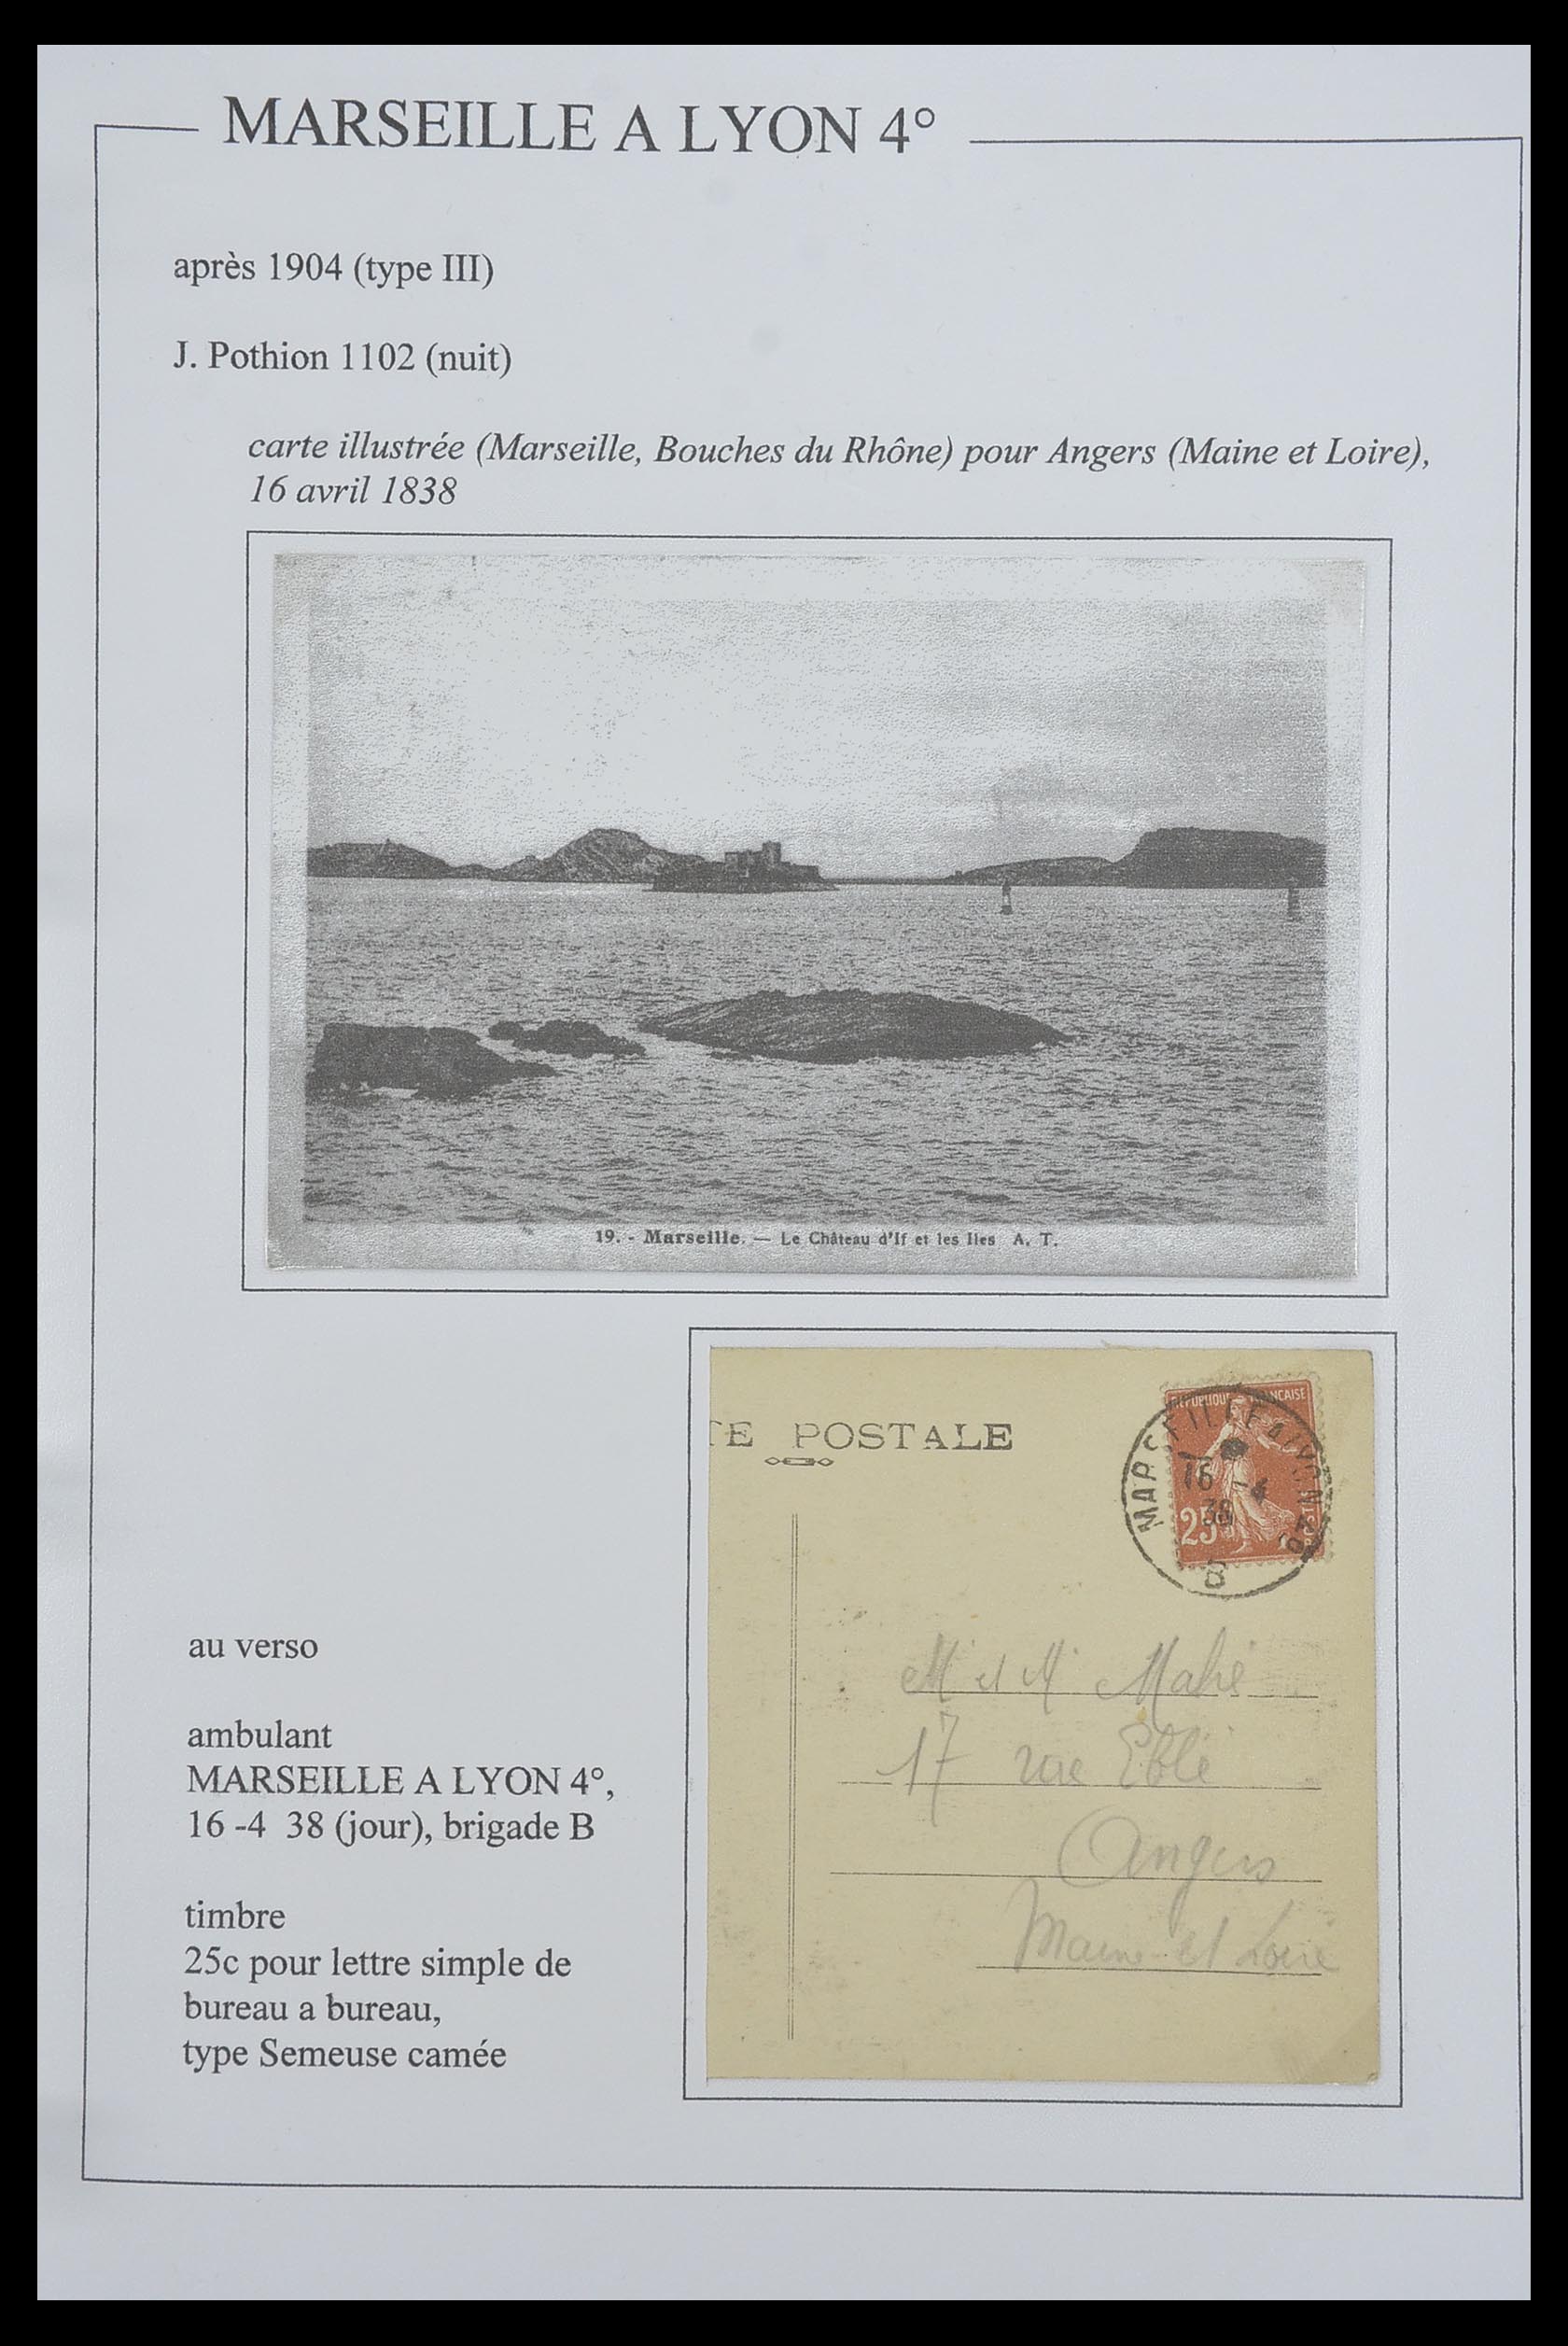 MARSEILLE A LYON 4°
après 1904 (type III)
J. Pothion 1102 (nuit)
carte illustrée (Marseille, Bouches du Rhône) pour Angers (Maine et Loire),
16 avril 1838
19. - Marseille. — Le Château d'If et les Iles A. T.
TE POSTALE
REPUBLIQUE FRANÇAISE
MARSEILLE A LYON 4°
16 -4
38
25
POSTES
B
M et M Mahé
17 rue Eblé
Angers
Maine et Loire
au verso
ambulant
MARSEILLE A LYON 4°,
16 -4 38 (jour), brigade B
timbre
25c pour lettre simple de
bureau a bureau,
type Semeuse camée